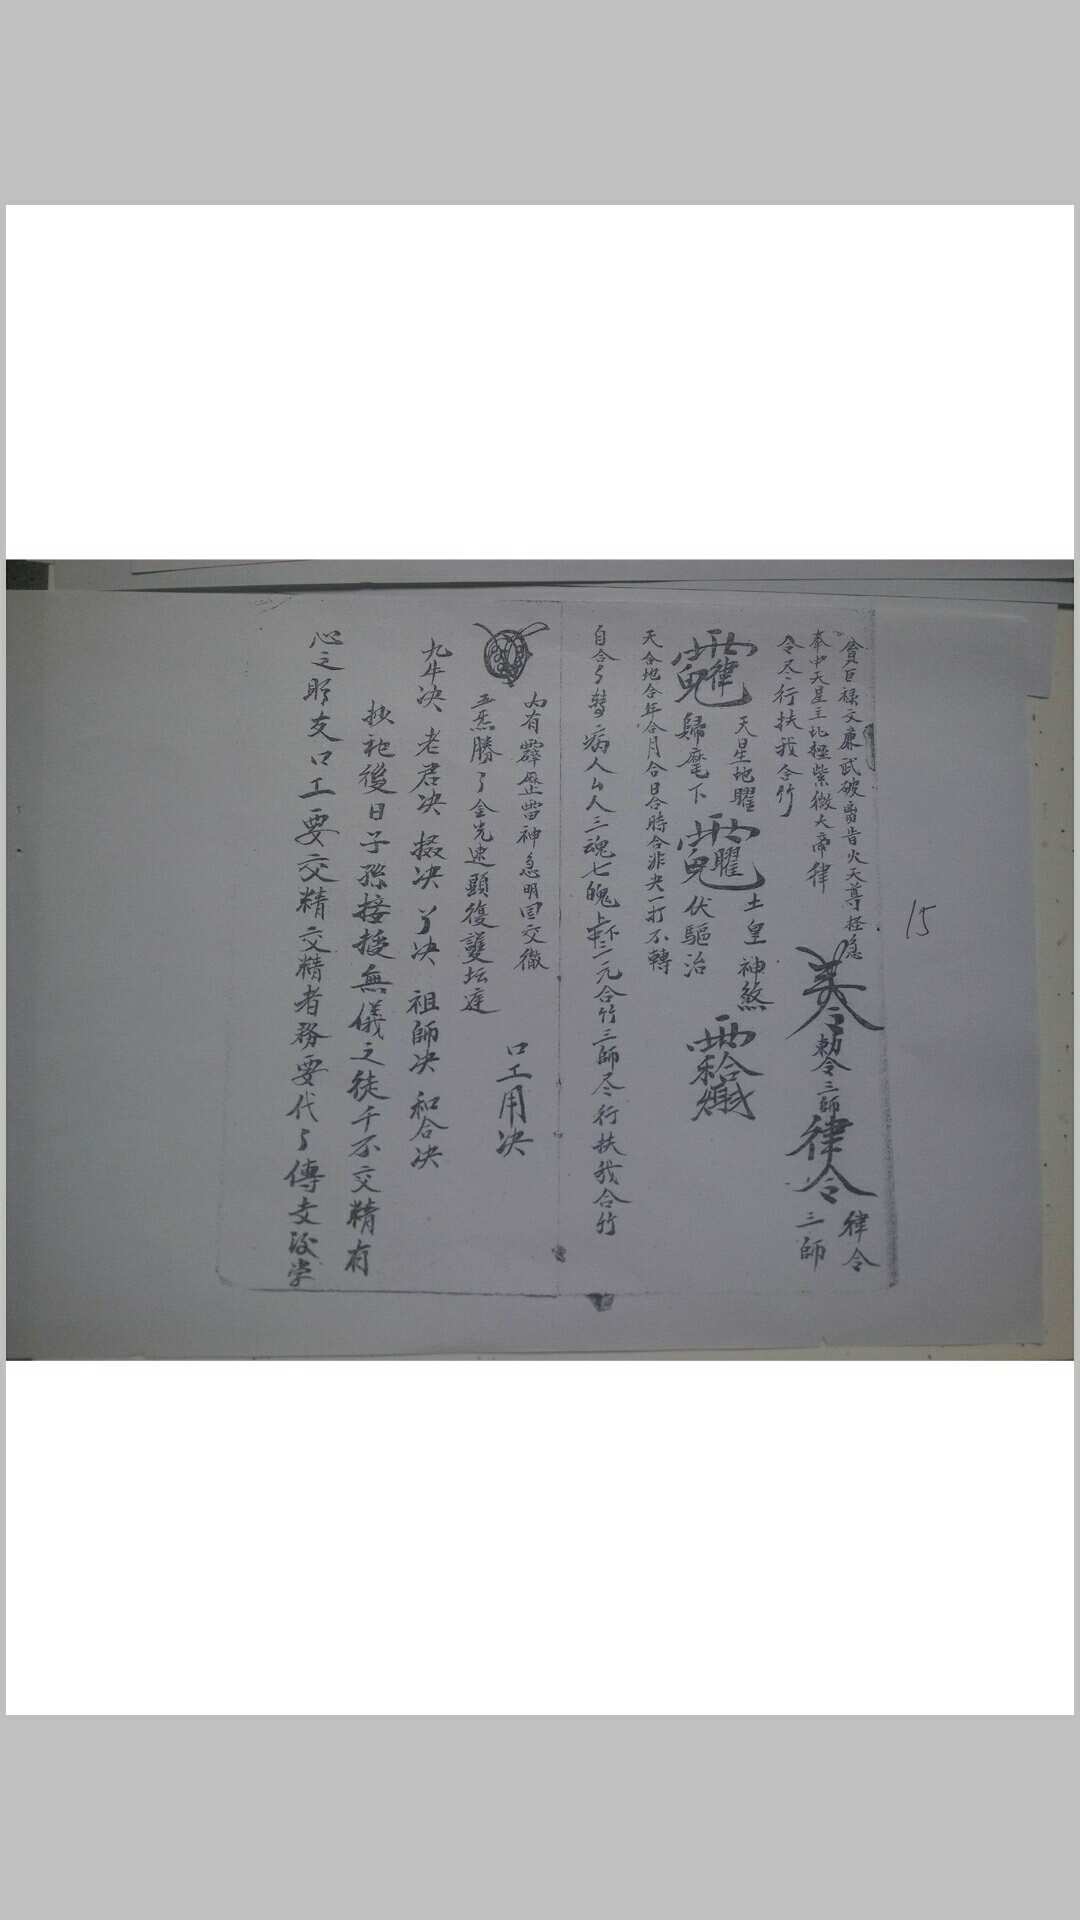 15
貪巨禄文廉武破 火天尊 急
奉中天星王北極紫微大帝律
令尽行扶我合竹
勅令三師律令
律令
三師
天星地曜 土皇神煞
歸麾下 伏驅治
天合地合年合月合日合時合非央一打不轉
自合了替病人ム人三魂七魄 元合竹三師尽行扶我合竹
内有霹歷雷神急明回交徹
五炁騰了金光速顯復雙坛庭
口工用决
九牛决 老君决 掇决 丫决 祖師决 和合决
抄袘後日子孫接授無儀之徒千不交精有
心之 友口工要交精交精者務要代了傳 学